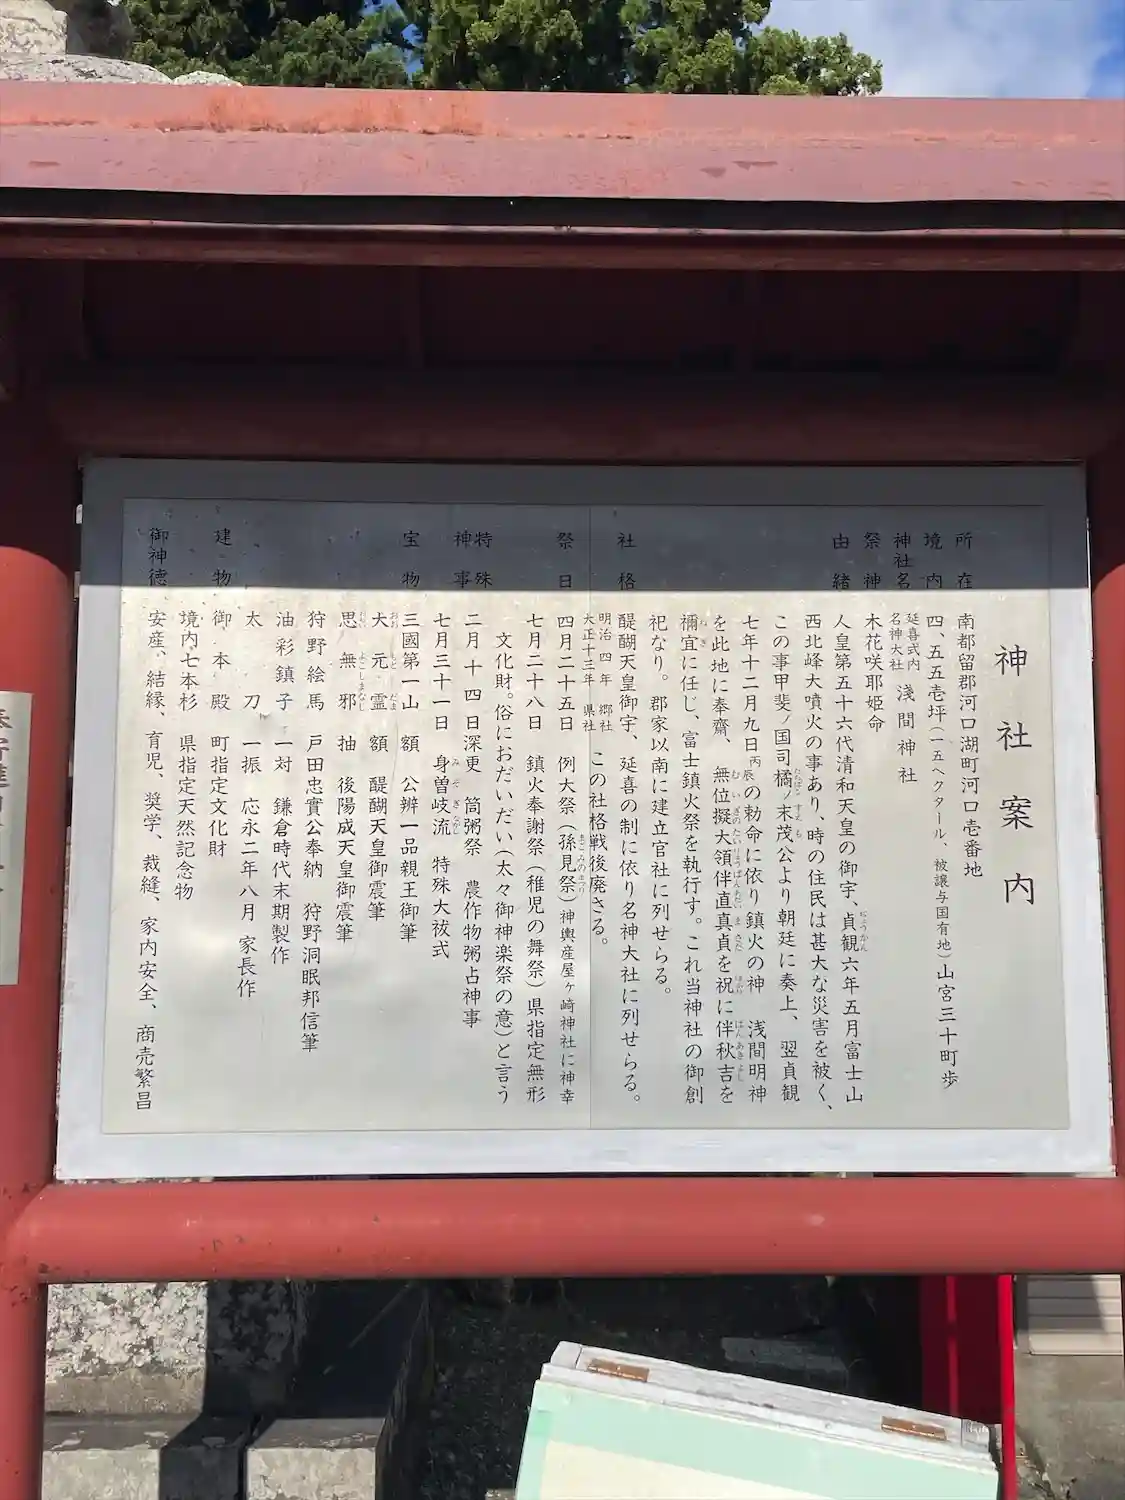 神社案内
所在 南都留郡河口湖町河口壱番地
境内 四、五五壱坪(一五ヘクタール、被譲与国有地)山宮三十町歩
神社名 延喜式内名神大社 浅間神社
祭神 木花咲耶姫命
由緒 人皇第五十六代清和天皇の御宇、貞観六年五月富士山
西北峰大噴火の事あり、時の住民は甚大な災害を被く、
この事甲斐ノ国司橘ノ末茂公より朝廷に奏上、翌貞観
七年十二月九日丙辰の勅命に依り鎮火の神 浅間明神
を此地に奉齋、無位擬大領伴直真貞を祝に伴秋吉を
禰宜に任じ、富士鎮火祭を執行す。これ当神社の御創
祀なり。郡家以南に建立官社に列せらる。
社格 醍醐天皇御宇、延喜の制に依り名神大社に列せらる。
明治四年 郷社
大正十三年 県社 この社格戦後廃さる。
祭日 四月二十五日 例大祭(孫見祭)神輿産屋ヶ崎神社に神幸
七月二十八日 鎮火奉謝祭(稚児の舞祭)県指定無形
文化財。俗におだいだい(太々御神楽祭の意)と言う
特殊神事 二月十四日深更 筒粥祭 農作物粥占神事
七月三十一日 身曽岐流 特殊大祓式
宝物 三國第一山 額 公辨一品親王御筆
大元霊 額 醍醐天皇御震筆
思無邪 抽 後陽成天皇御震筆
狩野絵馬 戸田忠實公奉納 狩野洞眠邦信筆
油彩鎮子 一対 鎌倉時代末期製作
太刀 一振 応永二年八月 家長作
建物 御本殿 町指定文化財
境内七本杉 県指定天然記念物
御神徳 安産、結縁、育児、奨学、裁縫、家内安全、商売繁昌